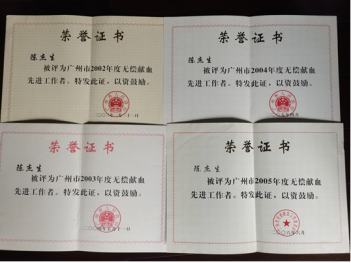 荣誉证书
陈杰生
被评为广州市2002年度无偿献血
先进工作者。特发此证，以资鼓励。
荣誉证书
陈杰生
被评为广州市2004年度无偿献血
先进工作者。特发此证，以资鼓励。
荣誉证书
陈杰生
被评为广州市2003年度无偿献血
先进工作者。特发此证，以资鼓励。
荣誉证书
陈杰生
被评为广州市2005年度无偿献血
先进工作者。特发此证，以资鼓励。
二〇〇六年六月